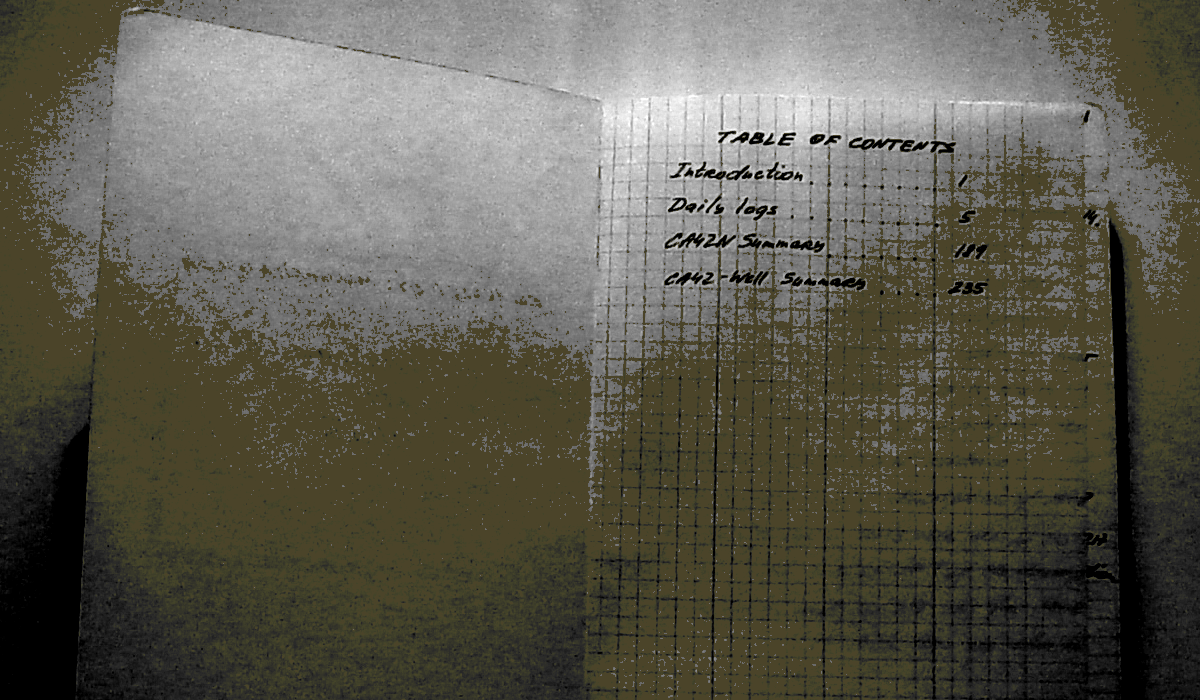 TABLE OF CONTENTS
Introduction . . . . . . . . 1
Daily logs . . . . . . . . . 5
CA42N Summary . . . . . . 189
CA42-Well Summary . . . . 235